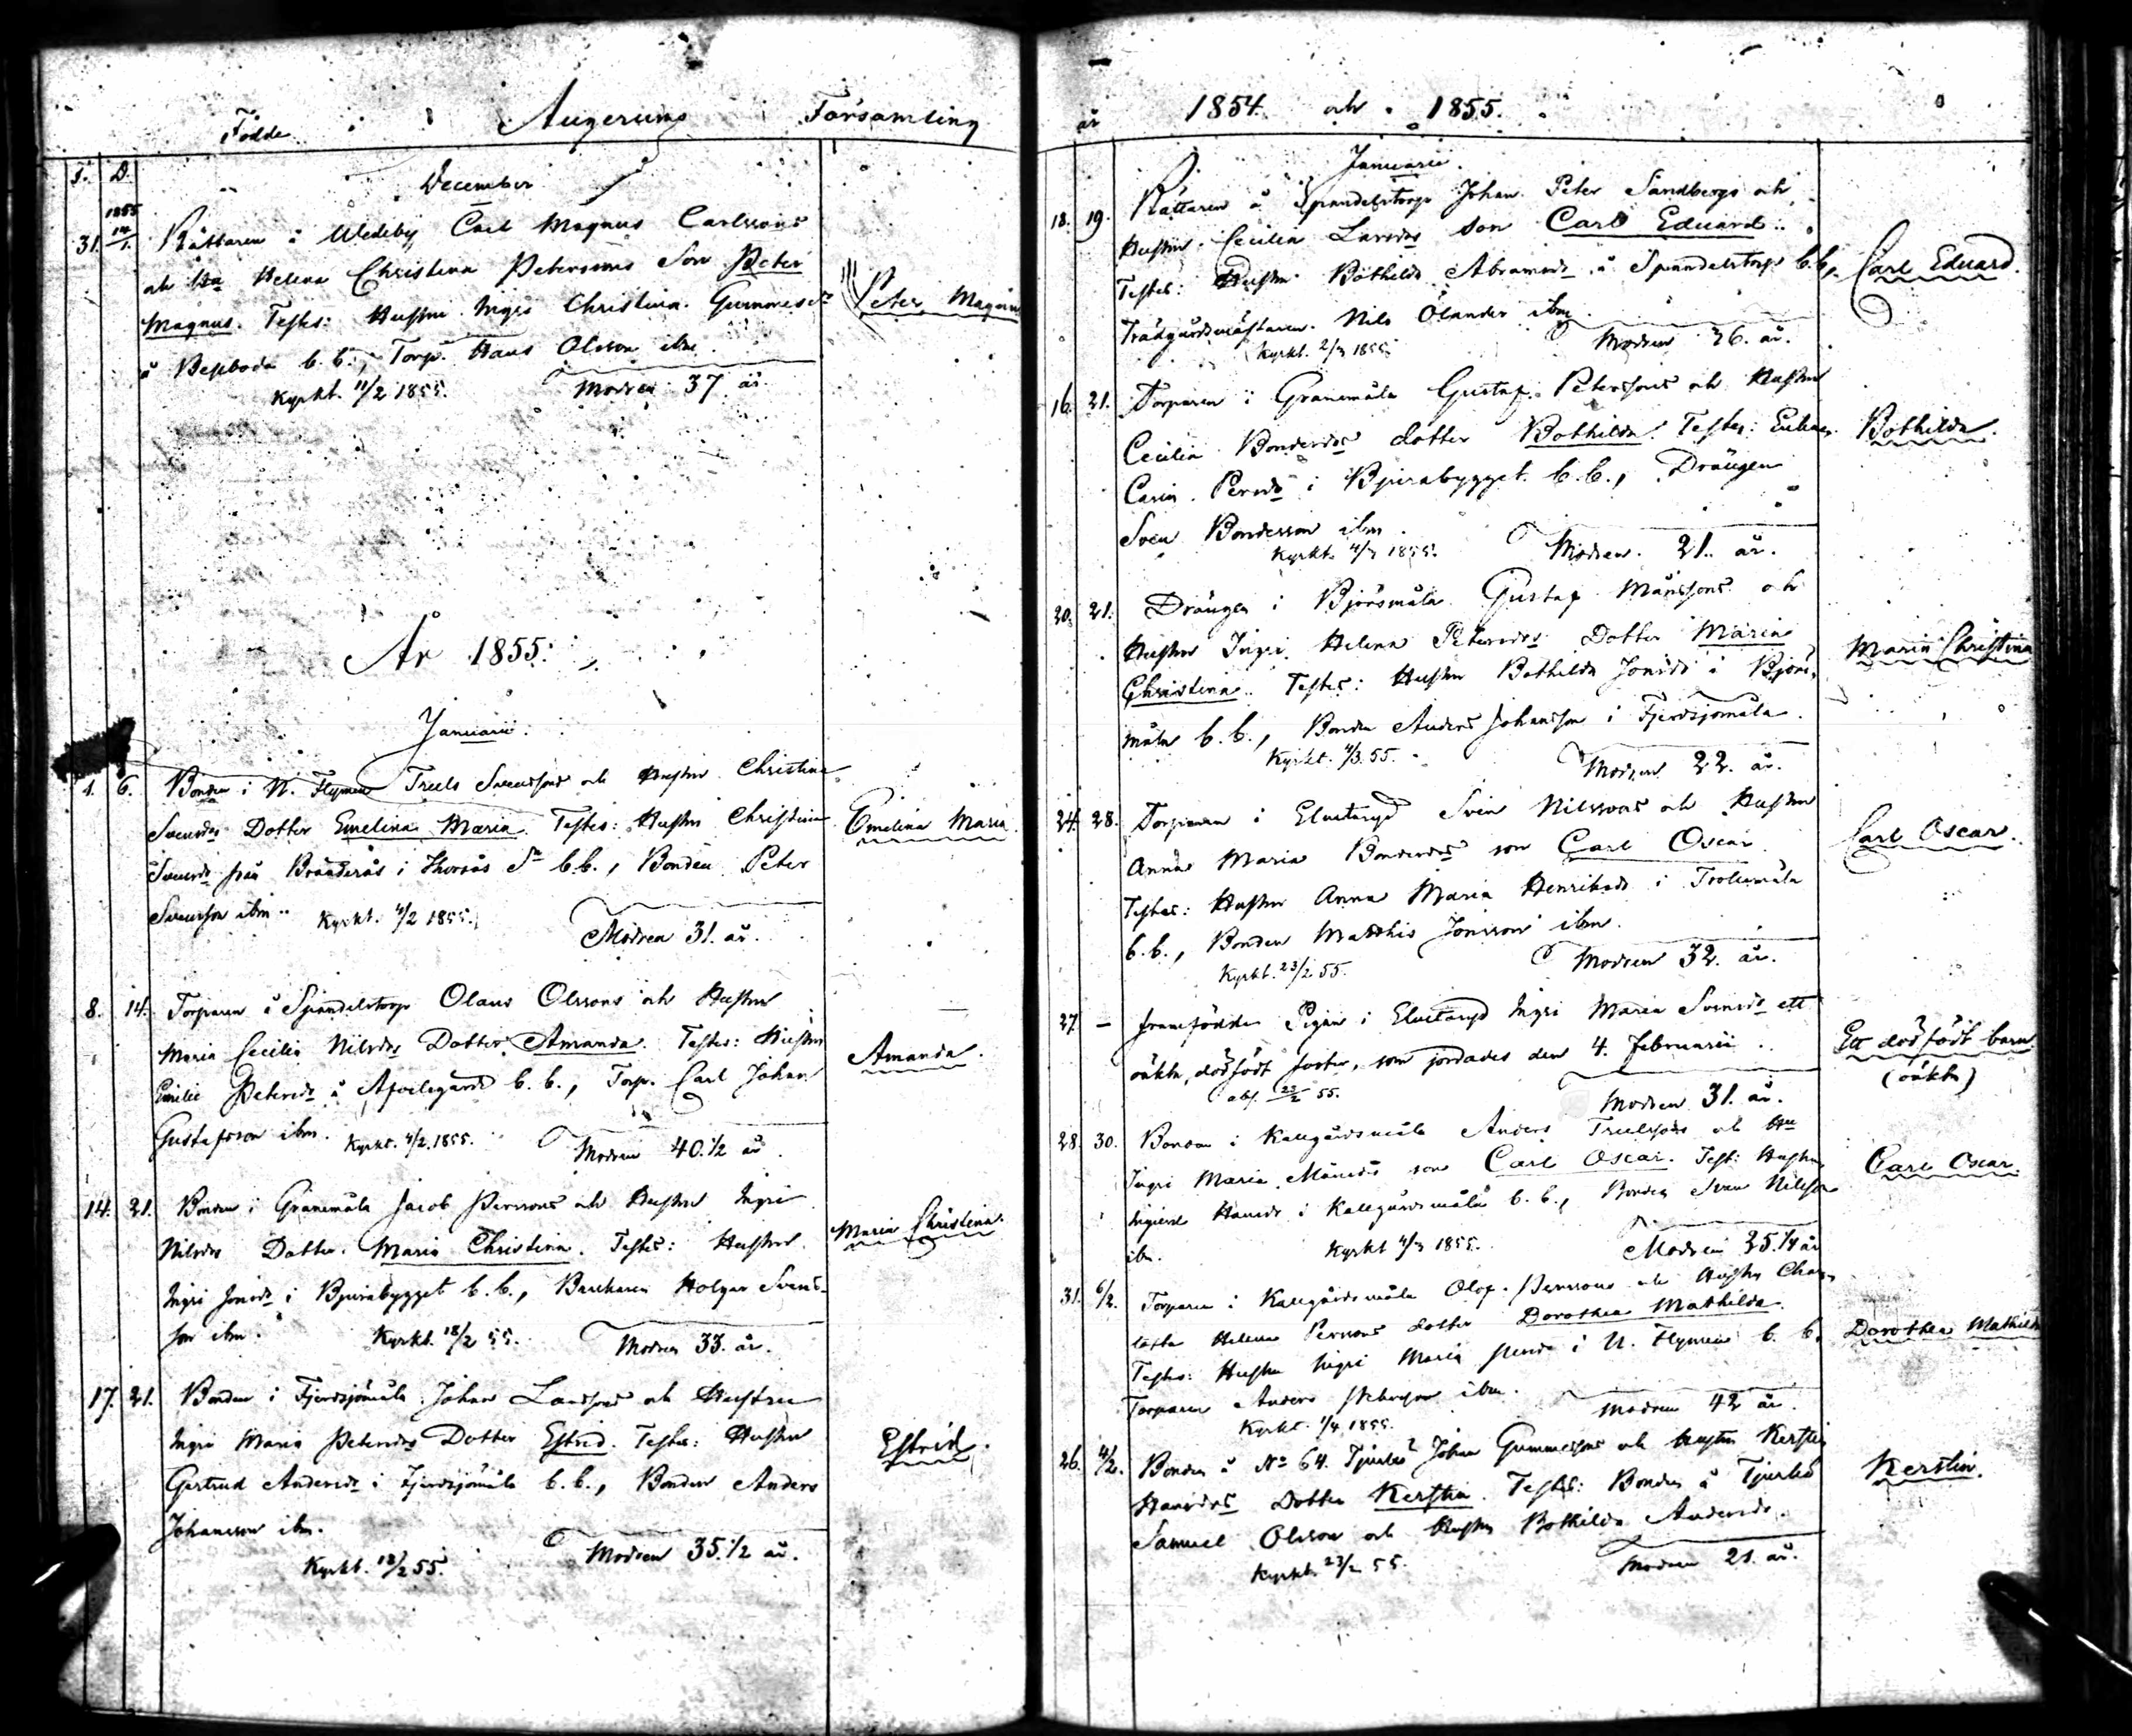 Födde i Augerums Församling
F. D.
December
1855
31. 14/1. Rättaren å Wedeby Carl Magnus Carlssons
och Hu Helena Christina Petersons Son Peter
Magnus. Testes: Hustru Ingri Christina Gummesdr
å Bepboda b.b., Torp. Hans Olsson ibm.
Kyrkt. 11/2 1855. Modren 37 år
Peter Magnus
År 1855.
Januarii.
1. 6. Bonden i N. Flymen Truls Svenssons och Hustru Christina
Svensdrs Dotter Emelina Maria. Testes: Hustru Christina
Svensdr från i Thorsås Sn b.b., Bonden Peter
Svensson ibm. Kyrkt. 4/2 1855.
Modren 31. år.
Emelina Maria.
8. 14. Torparen å Spandelstorp Olaus Olssons och Hustru
Maria Cecilia Nilsdrs Dotter Amanda. Testes: Hustru
Emilie Petersdr å Afvelsgärde b.b., Torp. Carl Johan
Gustafsson ibm. Kyrkt. 4/2 1855. Modren 40.1/2 år.
Amanda.
14. 21. Bonden i Gränemåla Jacob Perssons och Hustru Ingri
Nilsdrs Dotter Maria Christina. Testes: Hustru
Ingri Jonsdr i Bjurabygget b.b., Holger Svens-
son ibm. Kyrkt. 18/2 55. Modren 33. år.
Maria Christina.
17. 21. Bonden i Fjerdsjömåla Johan Larssons och Hustru
Ingri Maria Petersdrs Dotter Estrid. Testes: Hustru
Gertrud Andersdr i Fjerdsjömåla b.b., Bonden Anders
Johansson ibm.
Kyrkt. 18/2 55. Modren 35.1/2 år.
Estrid.
år 1854. och 1855.
Januarii.
18. 19. Rättaren å Spandelstorp Johan Peter Sandbergs och
Hustru Cecilia Larsdrs Son Carl Eduard.
Testes: Hustru Bothilda Abramsdr å Spandelstorp b.b.,
Trädgårdsmästaren Nils Ölander ibm.
Kyrkt. 2/3 1855. Modren 36. år.
Carl Eduard.
16. 21. Torparen i Granemåla Gustaf Peterssons och Hustru
Cecilia Bondesdrs dotter Bothilda. Testes: Enkan
Carin Persdr i Bjurabygget b.b., Drängen
Sven Bondesson ibm.
Kyrkt. 4/3 1855. Modren 21. år.
Bothilda.
20. 21. Drängen i Björsmåla Gustaf Månssons och
Hustru Ingri Helena Petersdrs Dotter Maria
Christina. Testes: Hustru Bothilda Jonsdr i Björs-
måla b.b., Bonden Anders Johansson i Fjerdsjömåla.
Kyrkt. 4/3.55. Modren 22. år.
Maria Christina
24. 28. Torparen i Elmtaryd Sven Nilssons och Hustru
Anna Maria Bondesdrs son Carl Oscar
Testes: Hustru Anna Maria Henriksdr i Trolemåla
b.b., Bonden Matthis Jönsson ibm.
Kyrkt. 23/2 55. Modren 32. år.
Carl Oscar.
27. — framfödde Pigan i Elmtaryd Ingri Maria Svensdr ett
oäkta, dödfödt foster, som jordades den 4. Februarii.
abs. 23/2 55. Modren 31. år.
Ett dödfödt barn
(oäkta)
28. 30. Bonden i Kallgårdsmåla Anders Trulssons och Hu
Ingri Maria Månsdrs son Carl Oscar. Test: Hustru
Ingierd Hansdr i Kallgårdsmåla b.b., Bonden Sven Nilsson
ibm. Kyrkt 4/3 1855. Modren 25.1/4 år
Carl Oscar.
31. 6/2. Torparen i Kallgårdsmåla Olof Perssons och Hustru Char-
lotta Helena Persons dotter Dorothea Mathilda.
Testes: Hustru Ingri Maria i N. Flymen b.b.
Torparen Anders ibm.
Kyrkt. 1/4 1855. Modren 42 år.
Dorothea Mathilda
26. 4/2. Bonden å No 64. Tjurkö Johan Gummessons och Hustru Kerstin
Hansdrs Dotter Kerstin. Testes: Bonden å Tjurkö
Samuel Olsson och Hustru Bothilda Andersdr.
Kyrkt. 23/2 55. Modren 21. år.
Kerstin.